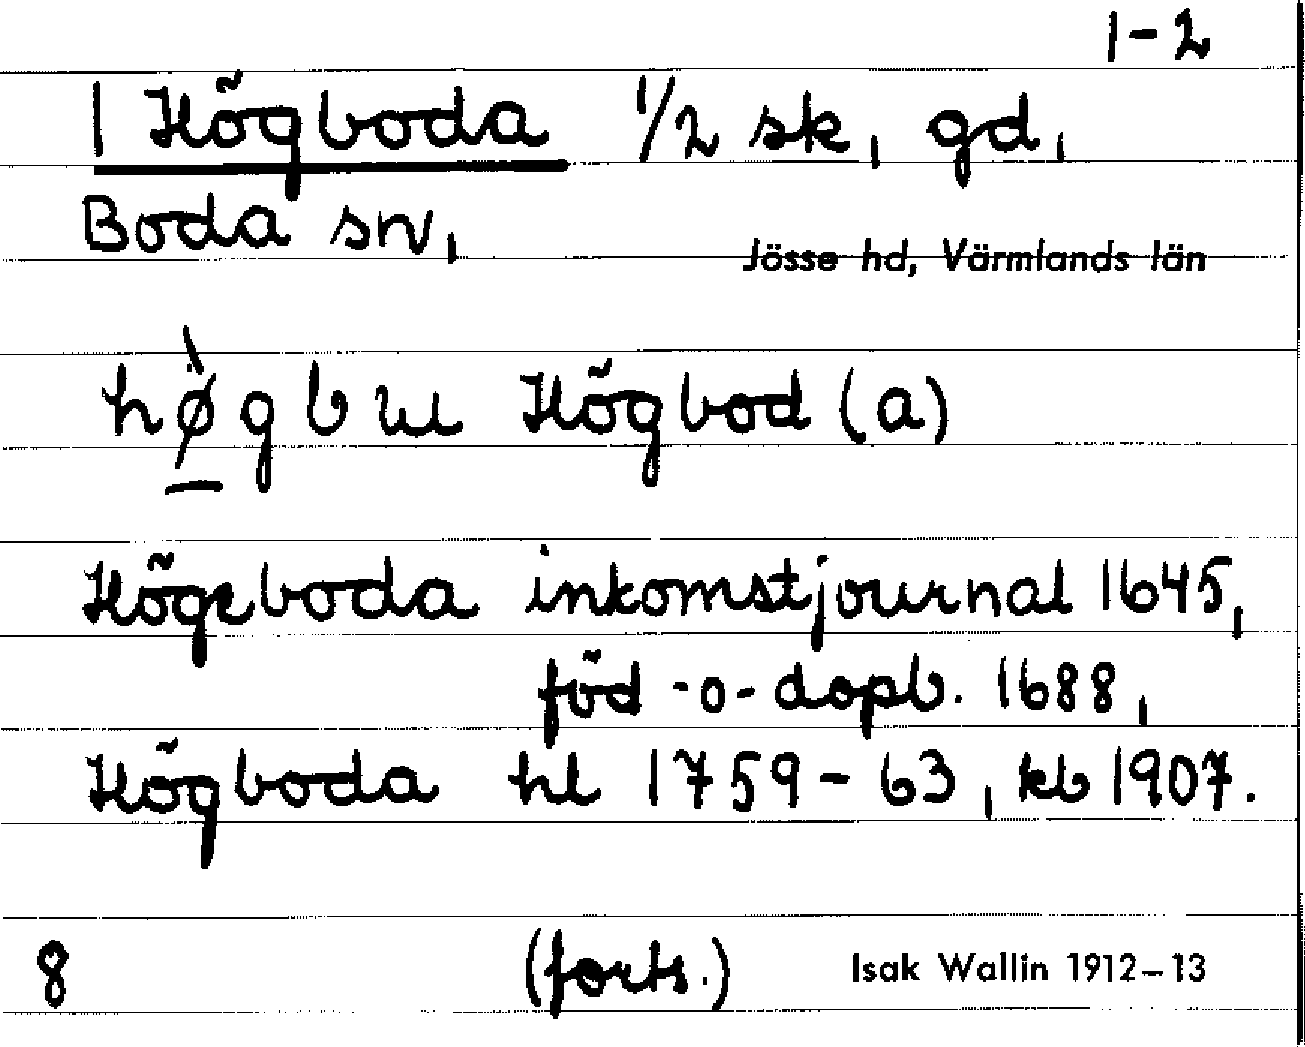 1-2
1 Högboda 1/2 sk, gd,
Boda sn,
Jösse hd, Värmlands län
Högbod(a)
Högeboda inkomstjournal 1645,
föd -o- dopb. 1688,
Högboda hl 1759-63, kb 1907.
8 (forts.) Isak Wallin 1912-13